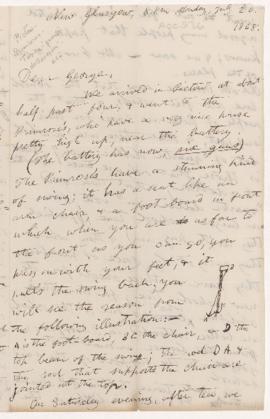 New Glasgow, 8 P.M. Monday July 20.
1868.
Dear George,
We arrived in Pictou at about
half past four, & went to the
Primrose's, who have a very nice house
pretty high up, near the battery.
(The battery has now, one gun)
The Primroses have a stunning kind
of swing: it has a seat like an
arm chair, & a foot board in front
which when you are as far to
the front as you can go, you
press with your feet, & it
pulls the swing back; you
will see the reason from
the following illustration:—
A is the foot board, BC the chair, D the
top beam of the swing; the rod DA &
the rod that supports the chair are
jointed at the top.
On Saturday evening, after tea we